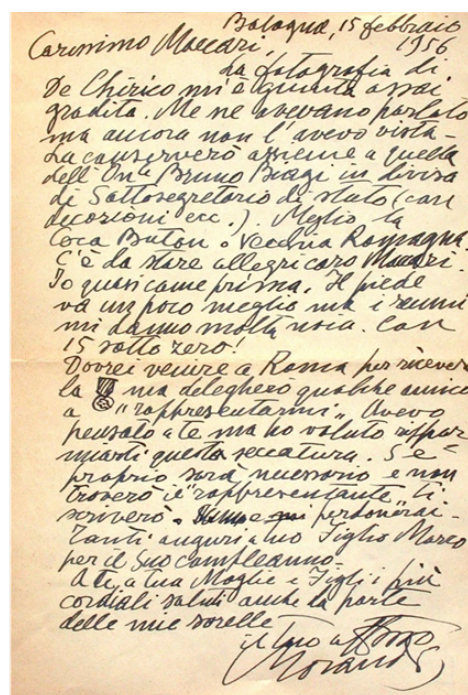 Bologna, 15 febbraio
1956
Carissimo Maccari,
La fotografia di
De Chirico mi è giunta assai
gradita. Me ne avevano parlato
ma ancora non l'avevo vista-
La conserverò assieme a quella
dell'On. Bruno Biagi in divisa
di Sottosegretario di stato (con
decorazioni ecc.). Meglio la
Coca Buton o Vecchia Romagna.
C'è da stare allegri caro Maccari.
Io quasi come prima. Il piede
va un poco meglio ma i reumi
mi danno molta noia. Con
15 sotto zero!
Dovrei venire a Roma per ricever
la ma delegherò qualche amico
a "rappresentarmi". Avevo
pensato a te ma ho voluto rispar
miarti questa seccatura. Se è
proprio sarà necessario e non
troverò il "rappresentante" ti
scriverò. perdonerai-
Tanti auguri a tuo Figlio Marco
per il suo compleanno-
A te, a tua Moglie e Figli i più
cordiali saluti anche da parte
delle mie sorelle
il tuo aff.mo
Morandi